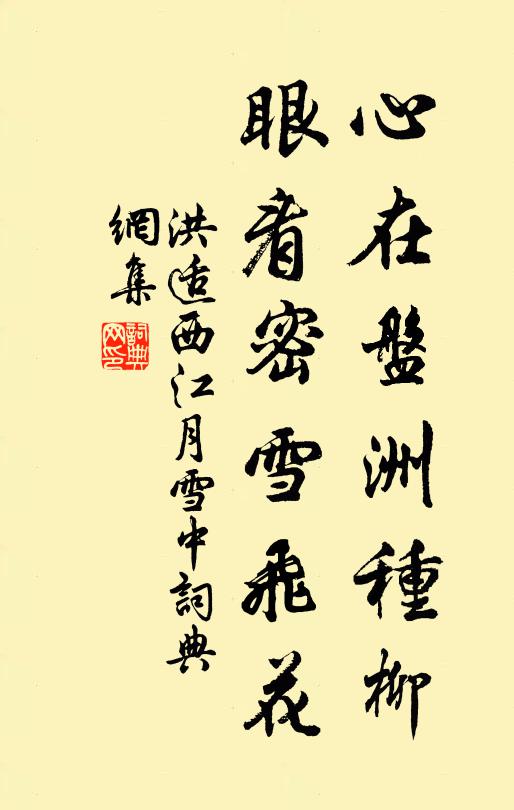 心在盤洲種柳
眼看密雪飛花
洪适西江月雪中詞典
網集
詞典
网印